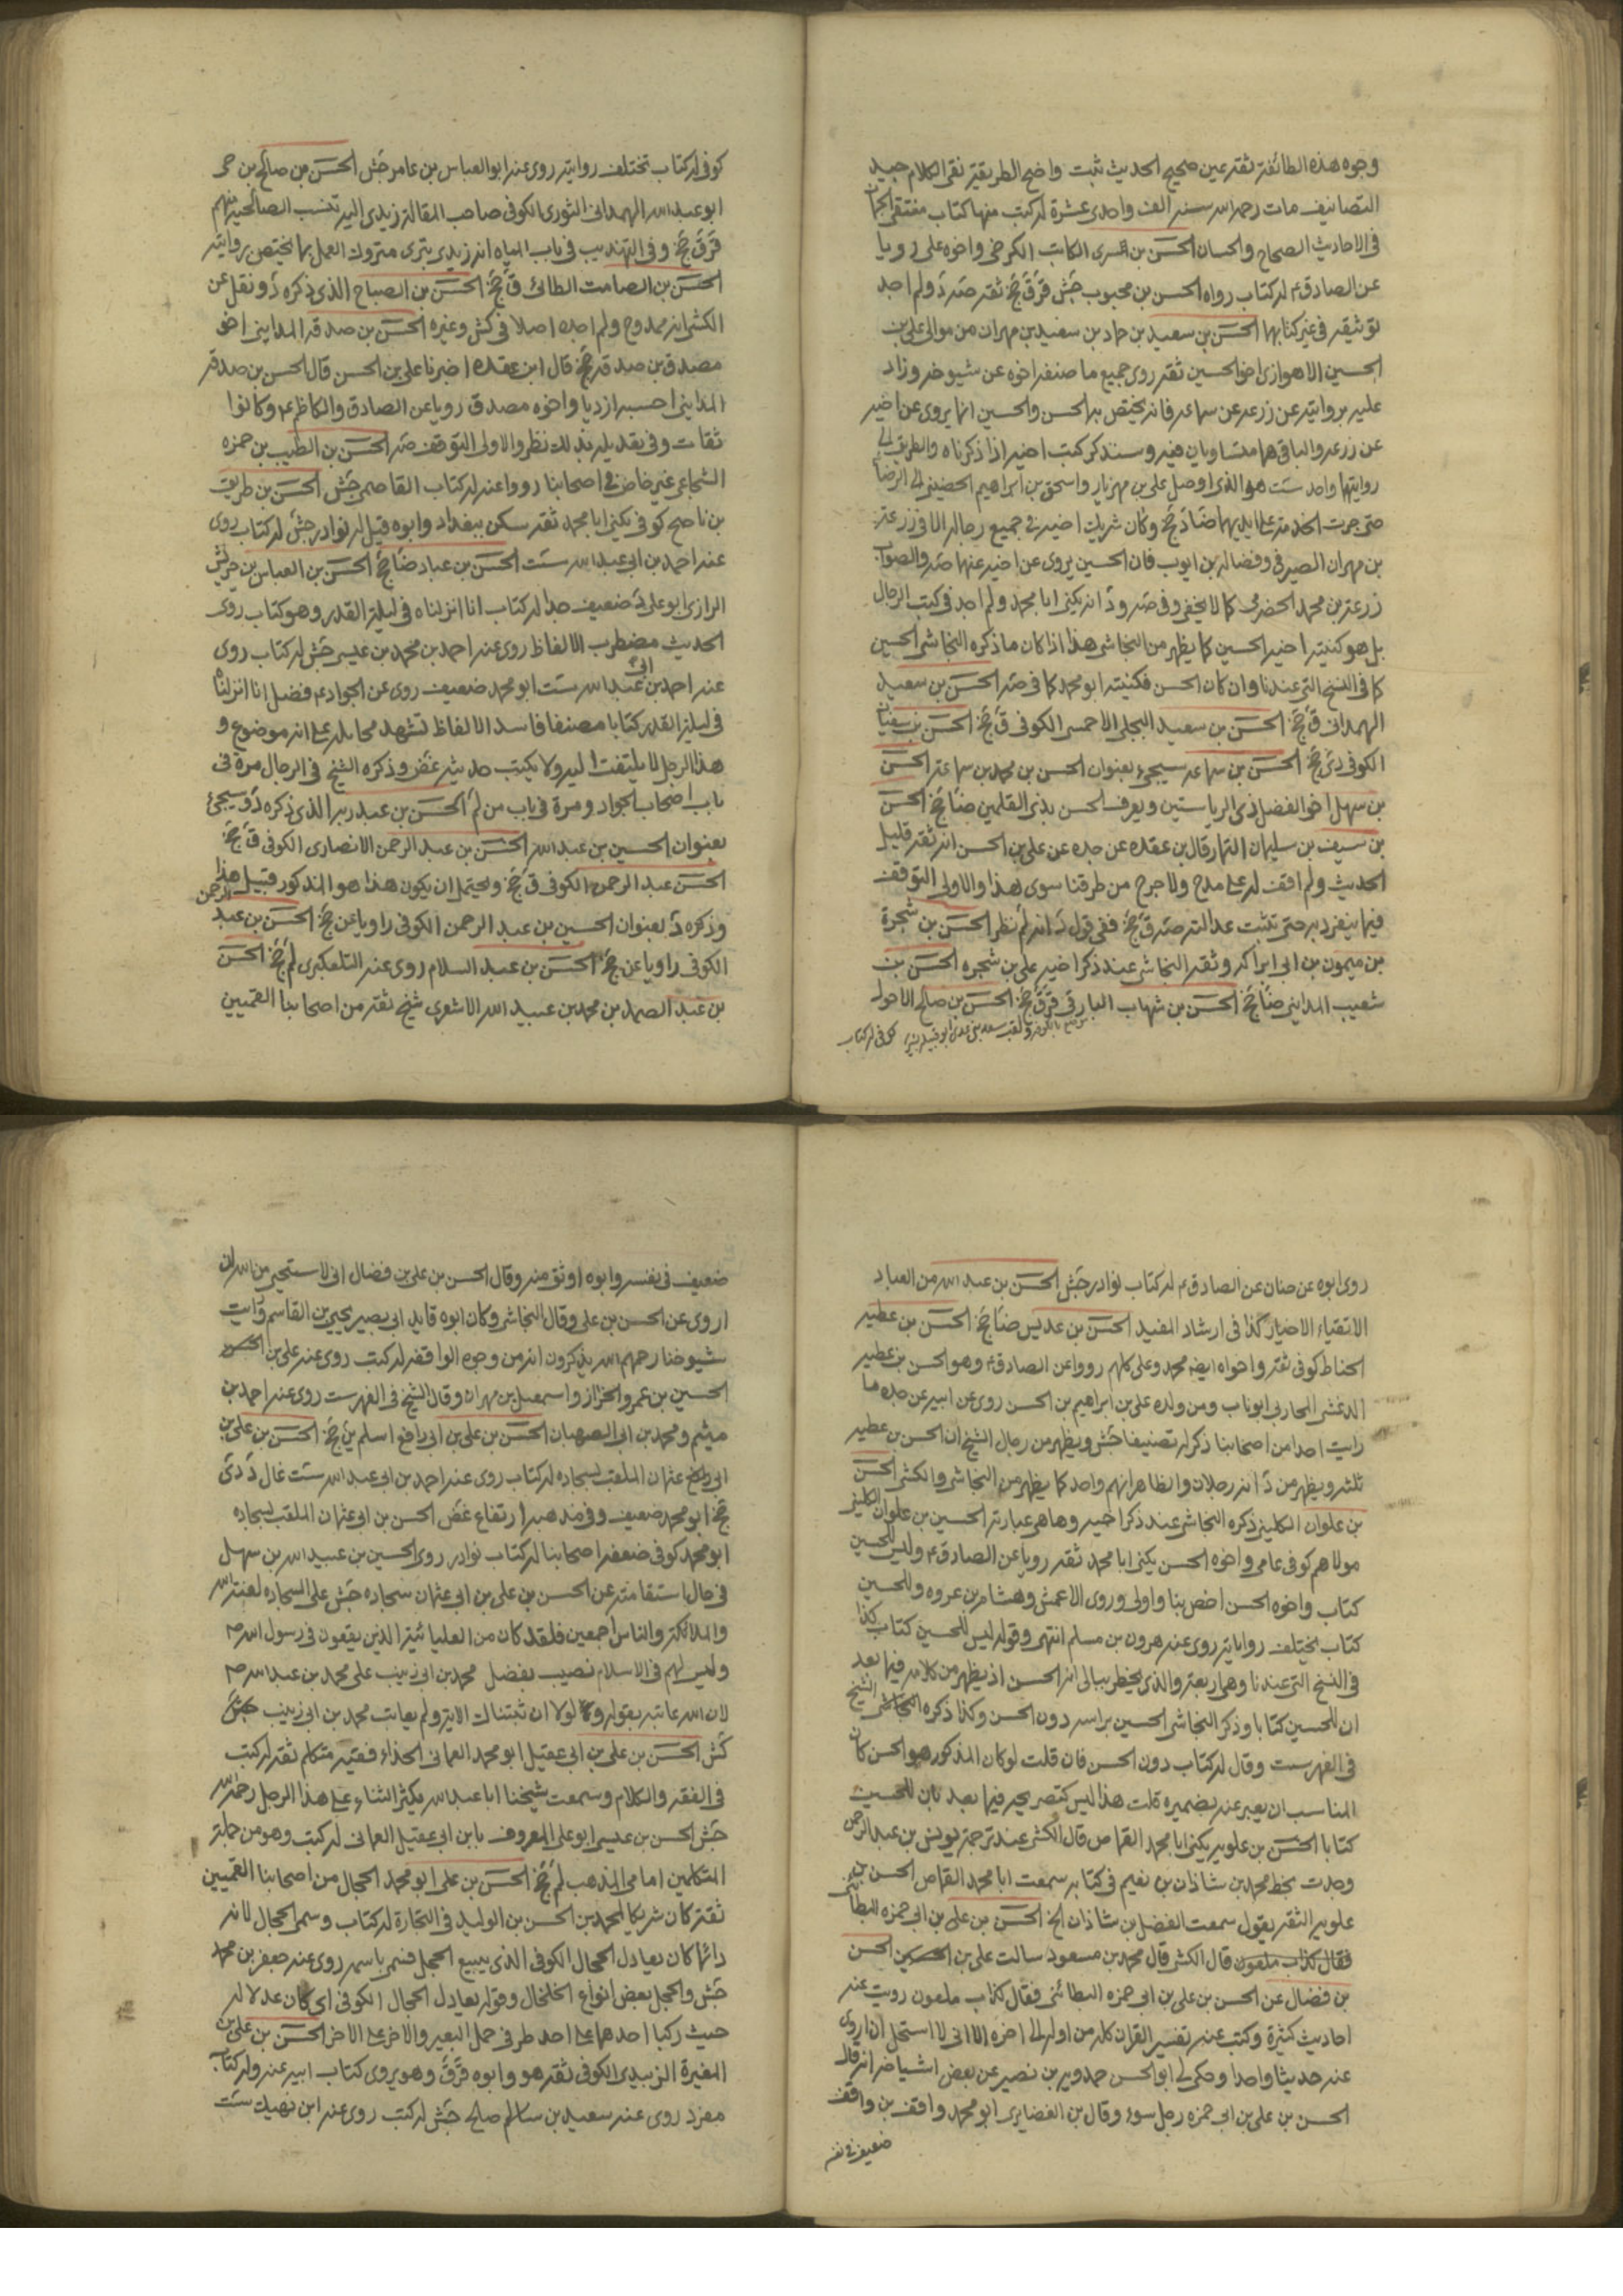 وجوه هذه الطائفة ثقة عين صحيح الحديث ثبت واضح الطريقة نقى الكلام جيد
التصانيف مات رحمه الله سنة الف واحدى عشرة له كتب منها كتاب منتقى الجمان
فى الاحاديث الصحاح والحسان الحسن بن السرى الكاتب الكرخى واخوه على رويا
عن الصادق ع له كتاب رواه الحسن بن محبوب جش قر ق جخ ثقة صه د ولم اجد
توثيقه فى غير كتابهما الحسن بن سعيد بن حماد بن سعيد بن مهران من موالى على بن
الحسين الاهوازى اخو الحسين ثقة روى جميع ما صنفه اخوه عن شيوخه وزاد
عليه بروايته عن زرعه عن سماعه فانه يختص به الحسن والحسين انما يروى عن اخيه
عن زرعه والباقى هما متساويان فيه وسنذكر كتب اخيه اذا ذكرناه والطريق الى
روايتها واحد ست هو الذى اوصل على بن مهزيار واسحق بن ابراهيم الحضينى الى الرضا ع
حتى جرت الخدمة على ايديهما ضا د جخ وكان شريك اخيه فى جميع رجاله الا فى زرعة
بن مهران الصيرفى وفضاله بن ايوب فان الحسين يروى عن اخيه عنهما صه والصواب
زرعة بن محمد الحضرمى كما لا يخفى وفى صه ود انه يكنى ابا محمد ولم اجد فى كتب الرجال
بل هو كنية اخيه الحسين كما يظهر من النجاشى هذا اذا كان ما ذكره النجاشى الحسين
كما فى النسخ التى عندنا وان كان الحسن فكنيته ابو محمد كما فى صه الحسن بن سعيد
الهمدانى ق جخ الحسن بن سعيد البجلى الاحمسى الكوفى ق جخ الحسن بن سفيان
الكوفى دى جخ الحسن بن سماعه سيجىء بعنوان الحسن بن محمد بن سماعة الحسن
بن سهل اخو الفضل ذى الرياستين ويعرف الحسن بذى القلمين ضا جخ الحسن
بن سيف بن سليمان التمار قال بن عقده عن جده عن على بن الحسن انه ثقة قليل
الحديث ولم اقف له على مدح ولا جرح من طرقنا سوى هذا والاولى التوقف
فيما ينفرد به حتى تثبت عدالته صه ق جخ ففى قول د انه لم نظر الحسن بن شجرة
بن ميمون بن ابى اراكه وثقه النجاشى عند ذكر اخيه على بن شجره الحسن بن
شعيب المداينى ضا جخ الحسن بن شهاب البارقى قر ق جخ الحسن بن صالح الاحول
كوفى له كتاب
كوفى له كتاب تختلف روايته روى عنه ابو العباس بن عامر جش الحسن بن صالح بن حى
ابو عبد الله الهمدانى الثورى الكوفى صاحب المقالة زيدى اليه تنسب الصالحية منهم
قر ق جخ وفى التهذيب فى باب المياه انه زيدى بترى متروك العمل بما يختص بروايته
الحسن بن الصامت الطائى ق جخ الحسن بن الصباح الذى ذكره د ونقل عن
الكشى انه ممدوح ولم اجده اصلا فى كش وغيره الحسن بن صدقه المداينى اخو
مصدق بن صدقه جخ قال ابن عقده اخبرنا على بن الحسن قال الحسن بن صدقه
المداينى احسبه ازديا واخوه مصدق رويا عن الصادق والكاظم ع وكانوا
ثقات وفى تعديله بذلك نظر والاولى التوقف صه الحسن بن الطيب بن حمزه
الشجاعى غير خاص فى اصحابنا رووا عنه له كتاب القاصم جش الحسن بن طريف
بن ناصح كوفى يكنى ابا محمد ثقة سكن ببغداد وابوه قيل له نوادر جش له كتاب روى
عنه احمد بن ابى عبد الله ست الحسن بن عباد ضا جخ الحسن بن العباس بن حريش
الرازى ابو على د ضعيف جدا له كتاب انا انزلناه فى ليلة القدر وهو كتاب روى
الحديث مضطرب الالفاظ روى عنه احمد بن محمد بن عيسى جش له كتاب روى
عنه احمد بن ابى عبد الله ست ابو محمد ضعيف روى عن الجواد ع فضل انا انزلناه
فى ليلة القدر كتابا مصنفا فاسد الالفاظ تشهد مخايله على انه موضوع و
هذا الرجل لا يلتفت اليه ولا يكتب حديثه غض وذكره الشيخ فى الرجال مرة فى
باب اصحاب الجواد ومرة فى باب من لم الحسن بن عبد ربه الذى ذكره د وسيجىء
بعنوان الحسين بن عبد الله الحسن بن عبد الرحمن الانصارى الكوفى ق جخ
الحسن عبد الرحمن الكوفى ق جخ ويحتمل ان يكون هذا هو المذكور قبيل هذا
وذكره د بعنوان الحسين بن عبد الرحمن الكوفى راويا عن جخ الحسن بن عبد الرحمن
الكوفى راويا عن جخ الحسن بن عبد السلام روى عنه التلعكبرى لم جخ الحسن
بن عبد الصمد بن محمد بن عبيد الله الاشعرى شيخ ثقة من اصحابنا القميين
روى ابوه عن حنان عن الصادق ع له كتاب نوادر جش الحسن بن عبد الله من العباد
الاتقياء الاخيار كذا فى ارشاد المفيد الحسن بن عديس ضا جخ الحسن بن عطيه
الحناط كوفى ثقة واخواه ايضا محمد وعلى كلهم رووا عن الصادق ع وهو الحسن بن عطيه
الدغشى المحاربى ابو ناب ومن ولده على بن ابراهيم بن الحسن روى عن ابيه عن جده ما
رايت احدا من اصحابنا ذكر له تصنيفا جش ويظهر من رجال الشيخ ان الحسن بن عطيه
ثلثه ويظهر من د انه رجلان والظاهر انهم واحد كما يظهر من النجاشى والكشى الحسن
بن علوان الكلبى ذكره النجاشى عند ذكر اخيه وها هى عبارته الحسين بن علوان الكلبى
مولاهم كوفى عامى واخوه الحسن يكنى ابا محمد ثقة رويا عن الصادق ع وليس للحسين
كتاب واخوه الحسن اخص بنا واولى وروى الاعمش وهشام بن عروه وللحسين
كتاب يختلف رواياته روى عنه هرون بن مسلم انتهى وقوله ليس للحسين كتاب كذا
فى النسخ التى عندنا وهى اربعة والذى يخطر ببالى انه الحسن اذ يظهر من كلامه فيما بعد
ان للحسين كتابا وذكر النجاشى الحسين براسه دون الحسن وكذا ذكره الشيخ
فى الفهرست وقال له كتاب دون الحسن فان قلت لو كان المذكور هو الحسن كان
المناسب ان يعبر عنه بضميره قلت هذا ليس كتصريحه فيما بعد بان للحسين
كتابا الحسن بن علويه يكنى ابا محمد القماص قال الكشى عند ترجمة يونس بن عبد الرحمن
وجدت بخط محمد بن شاذان بن نعيم فى كتابه سمعت ابا محمد القماص الحسن بن
علويه الثقه يقول سمعت الفضل بن شاذان الخ الحسن بن على بن ابى حمزه البطائنى
فقال كذاب ملعون قال الكشى قال محمد بن مسعود سالت على بن الحسن
بن فضال عن الحسن بن على بن ابى حمزه البطائنى فقال كذاب ملعون رويت عنه
احاديث كثيرة وكتبت عنه تفسير القران كله من اوله الى اخره الا انى لا استحل ان اروى
عنه حديثا واحدا وحكى لى ابو الحسن حمدويه بن نصير عن بعض اشياخه انه قال
الحسن بن على بن ابى حمزه رجل سوء وقال بن الغضايرى ابو محمد واقف بن واقف
ضعيف فى نفسه
ضعيف فى نفسه وابوه اوثق منه وقال الحسن بن على بن فضال انى لاستحيى من الله ان
اروى عن الحسن بن على وقال النجاشى وكان ابوه قايد ابى بصير يحيى بن القاسم ورايت
شيوخنا رحمهم الله يذكرون انه من وجوه الواقفه له كتب روى عنه على بن الحسن
الحسين بن عمرو الخزاز واسمعيل بن مهران وقال الشيخ فى الفهرست روى عنه احمد بن
ميثم ومحمد بن ابى الصهبان الحسن بن على بن ابى رافع اسلم ين جخ الحسن بن على بن
ابى عثمان الملقب بسجاده له كتاب روى عنه احمد بن ابى عبد الله ست غال د دى
جخ ابو محمد ضعيف وفى مذهبه ارتفاع غض الحسن بن ابى عثمان الملقب بسجاده
ابو محمد كوفى ضعفه اصحابنا له كتاب نوادر روى الحسين بن عبيد الله بن سهل
فى حال استقامته عن الحسن بن على بن ابى عثمان سجاده جش على السجاده لعنة الله
والملائكة والناس اجمعين فلقد كان من العليائية الذين يقعون فى رسول الله ص
وليس لهم فى الاسلام نصيب يفضل محمد بن ابى زينب على محمد بن عبد الله ص
لان الله عاتبه بقوله ولولا ان ثبتناك الاية ولم يعاتب محمد بن ابى زينب
كش الحسن بن على بن ابى عقيل ابو محمد العمانى الحذاء فقيه متكلم ثقة له كتب
فى الفقه والكلام وسمعت شيخنا ابا عبد الله يكثر الثناء على هذا الرجل رحمه الله
جش الحسن بن عيسى ابو على المعروف بابن ابى عقيل العمانى له كتب وهو من جملة
المتكلمين امامى المذهب لم جخ الحسن بن على ابو محمد الحجال من اصحابنا القميين
ثقة كان شريكا لمحمد بن الحسن بن الوليد فى التجارة له كتاب وسمى الحجال لانه
دائما كان يعادل الحجال الكوفى الذى يبيع الحجل فسمى باسمه روى عنه جعفر بن محمد
جش والحجل بعض انواع الخلخال وقوله يعادل الحجال الكوفى اى كان عدلا له
حيث ركبا احدهما على احد طرفى حمل البعير والاخر على الاخر الحسن بن على بن
المغيرة الزبيدى الكوفى ثقة هو وابوه قر ق وهو يروى كتاب ابيه عنه وله كتاب
مفرد روى عنه سعيد بن صالح جش له كتب روى عنه ابن نهيك ست